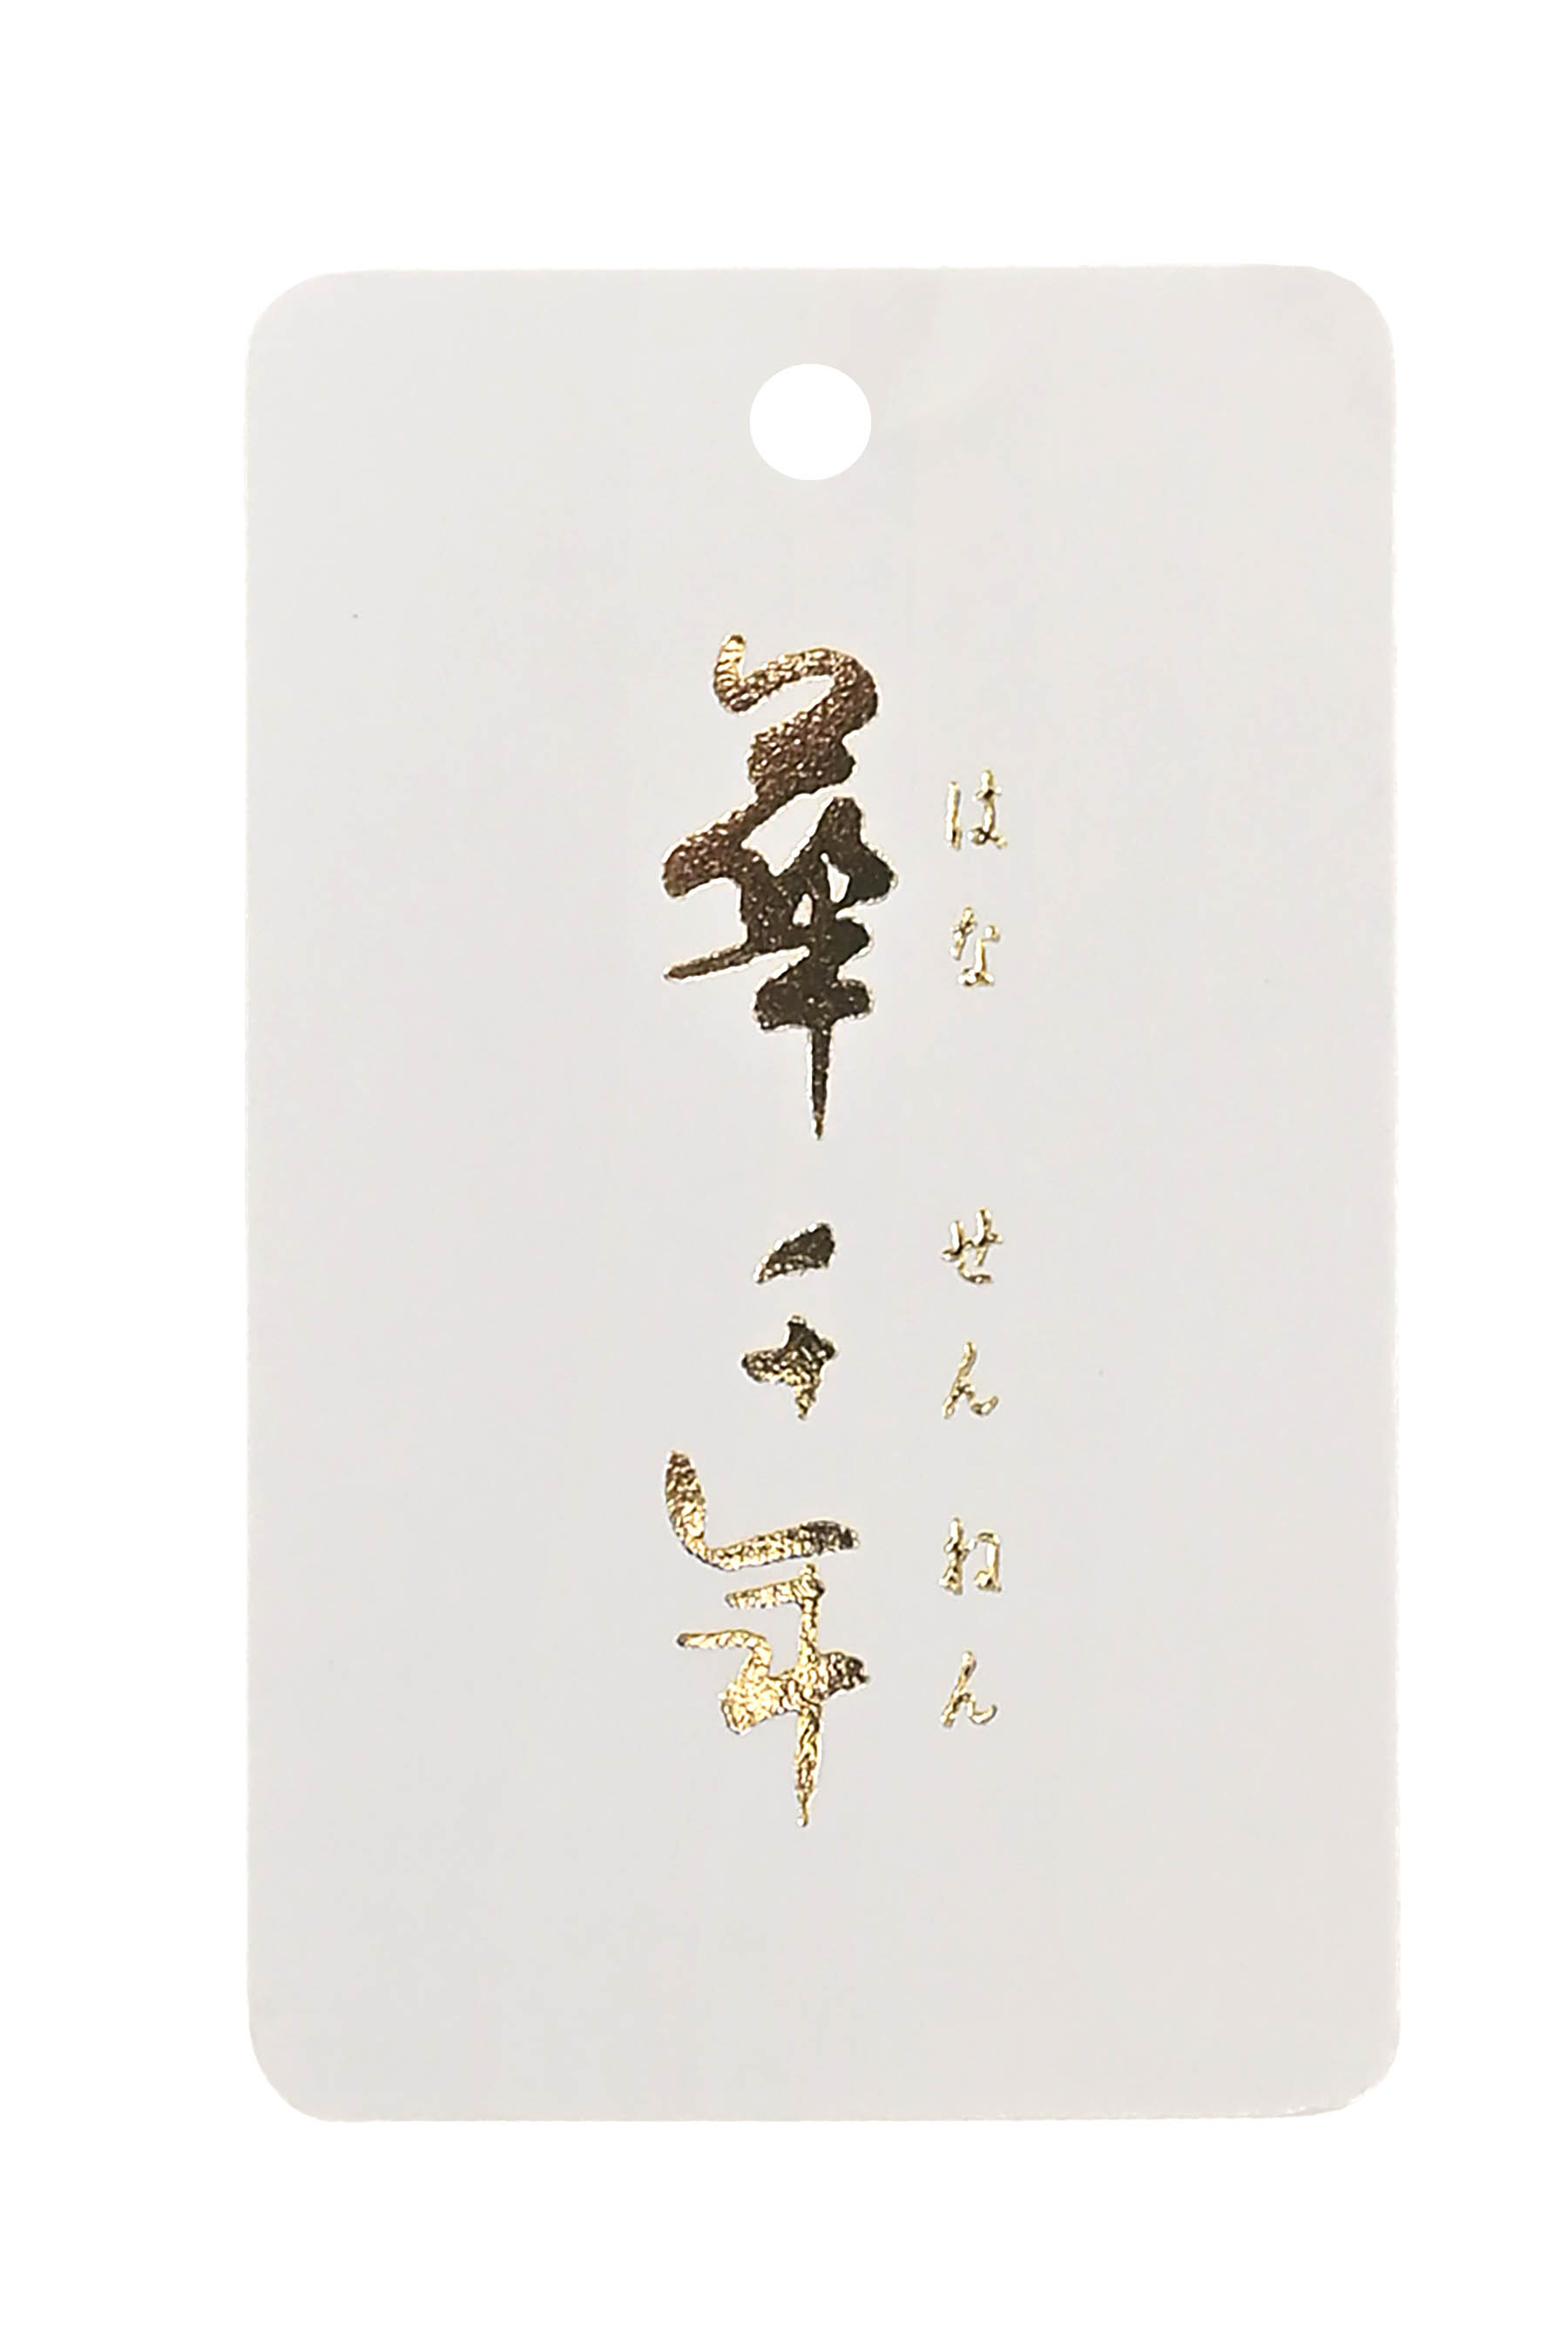 はな せんねん
華千年